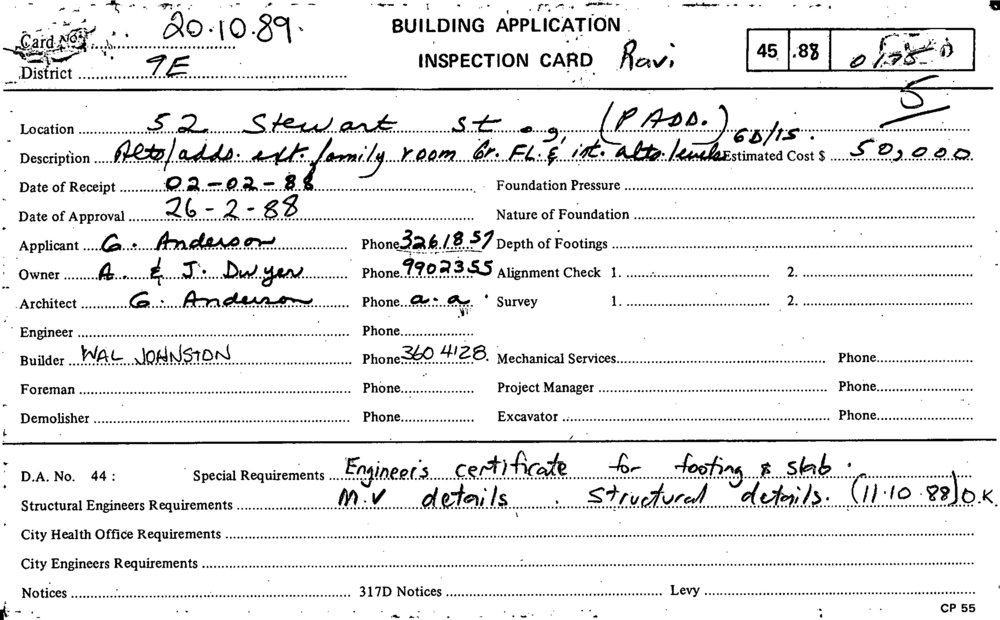 Card No. 20.10.89.
BUILDING APPLICATION
INSPECTION CARD Ravi
45 .88
District 9E
5
Location 52 Stewart St., (PADD.)
Description Alts/adds. ext. family room Gr. FL. & int. alts. levels 6D/15. Estimated Cost $ 50,000
Date of Receipt 02-02-88 Foundation Pressure
Date of Approval 26-2-88 Nature of Foundation
Applicant G. Anderson Phone 3261857 Depth of Footings
Owner A. & J. Dwyer Phone 9902355 Alignment Check 1. 2.
Architect G. Anderson Phone a.a Survey 1. 2.
Engineer Phone
Builder WAL JOHNSTON Phone 360 4128. Mechanical Services Phone
Foreman Phone Project Manager Phone
Demolisher Phone Excavator Phone
D.A. No. 44 : Special Requirements Engineer's certificate for footing & slab.
Structural Engineers Requirements M.V details. Structural details. (11.10.88) O.K.
City Health Office Requirements
City Engineers Requirements
Notices 317D Notices Levy
CP 55